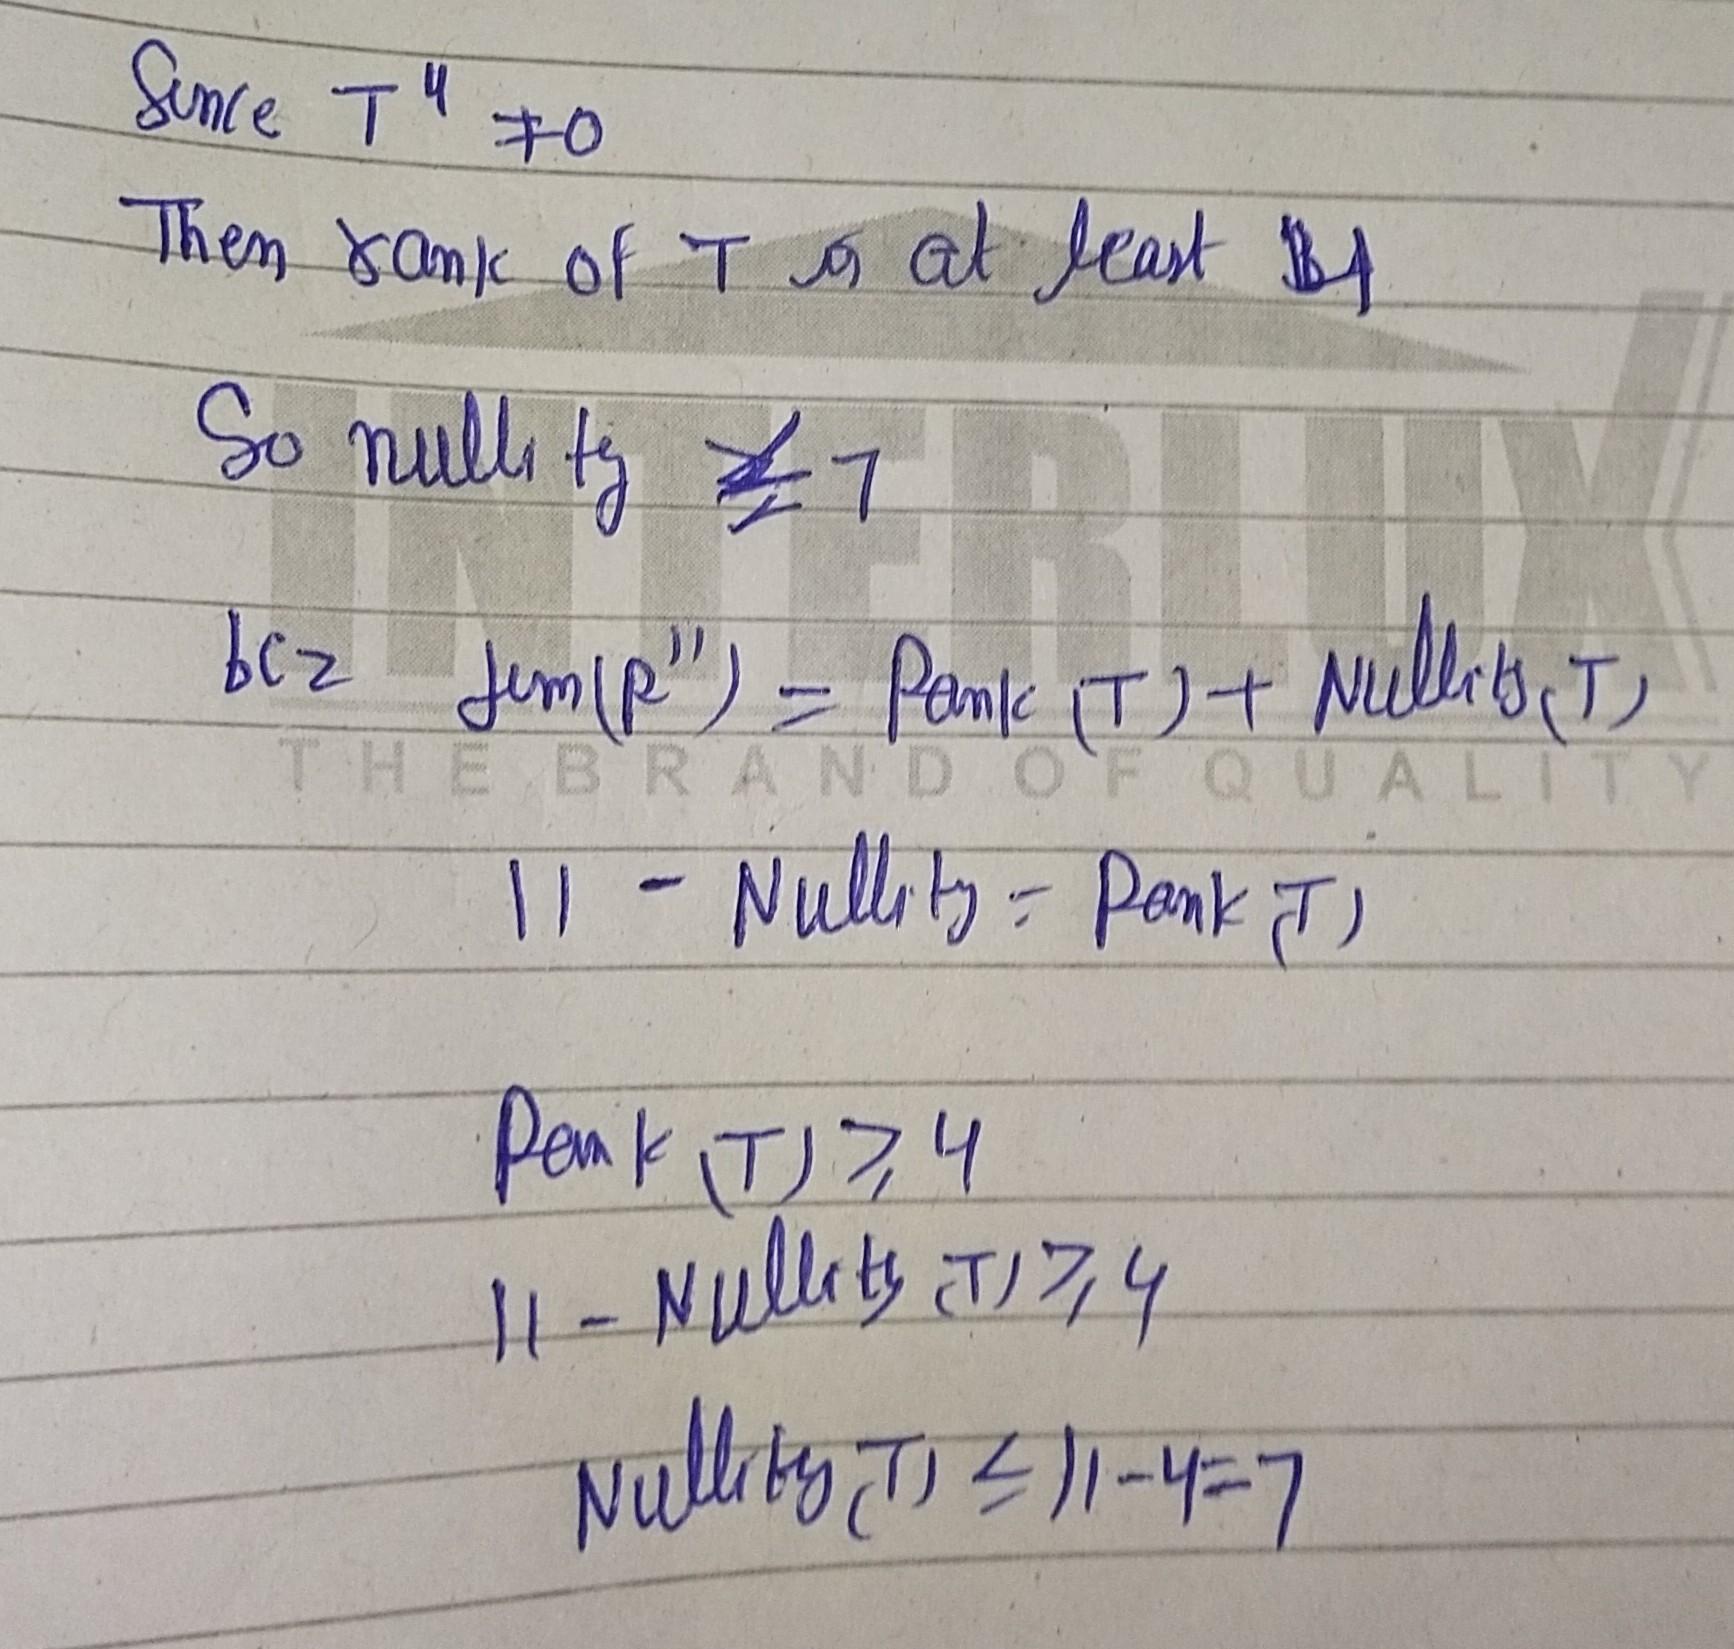 Since T⁴ ≠0
Then rank of T is at least 4
So nullity ≤ 7
bcz dim(R¹¹) = Rank (T) + Nullity (T)
INTERLUX
THE BRAND OF QUALITY
11 - Nullity = Rank (T)
Rank (T) ≥ 4
11 - Nullity (T) ≥ 4
Nullity (T) ≤ 11-4=7